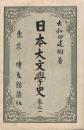 大和田建樹著
日本大文學史 巻之一
東京 博文館蔵版